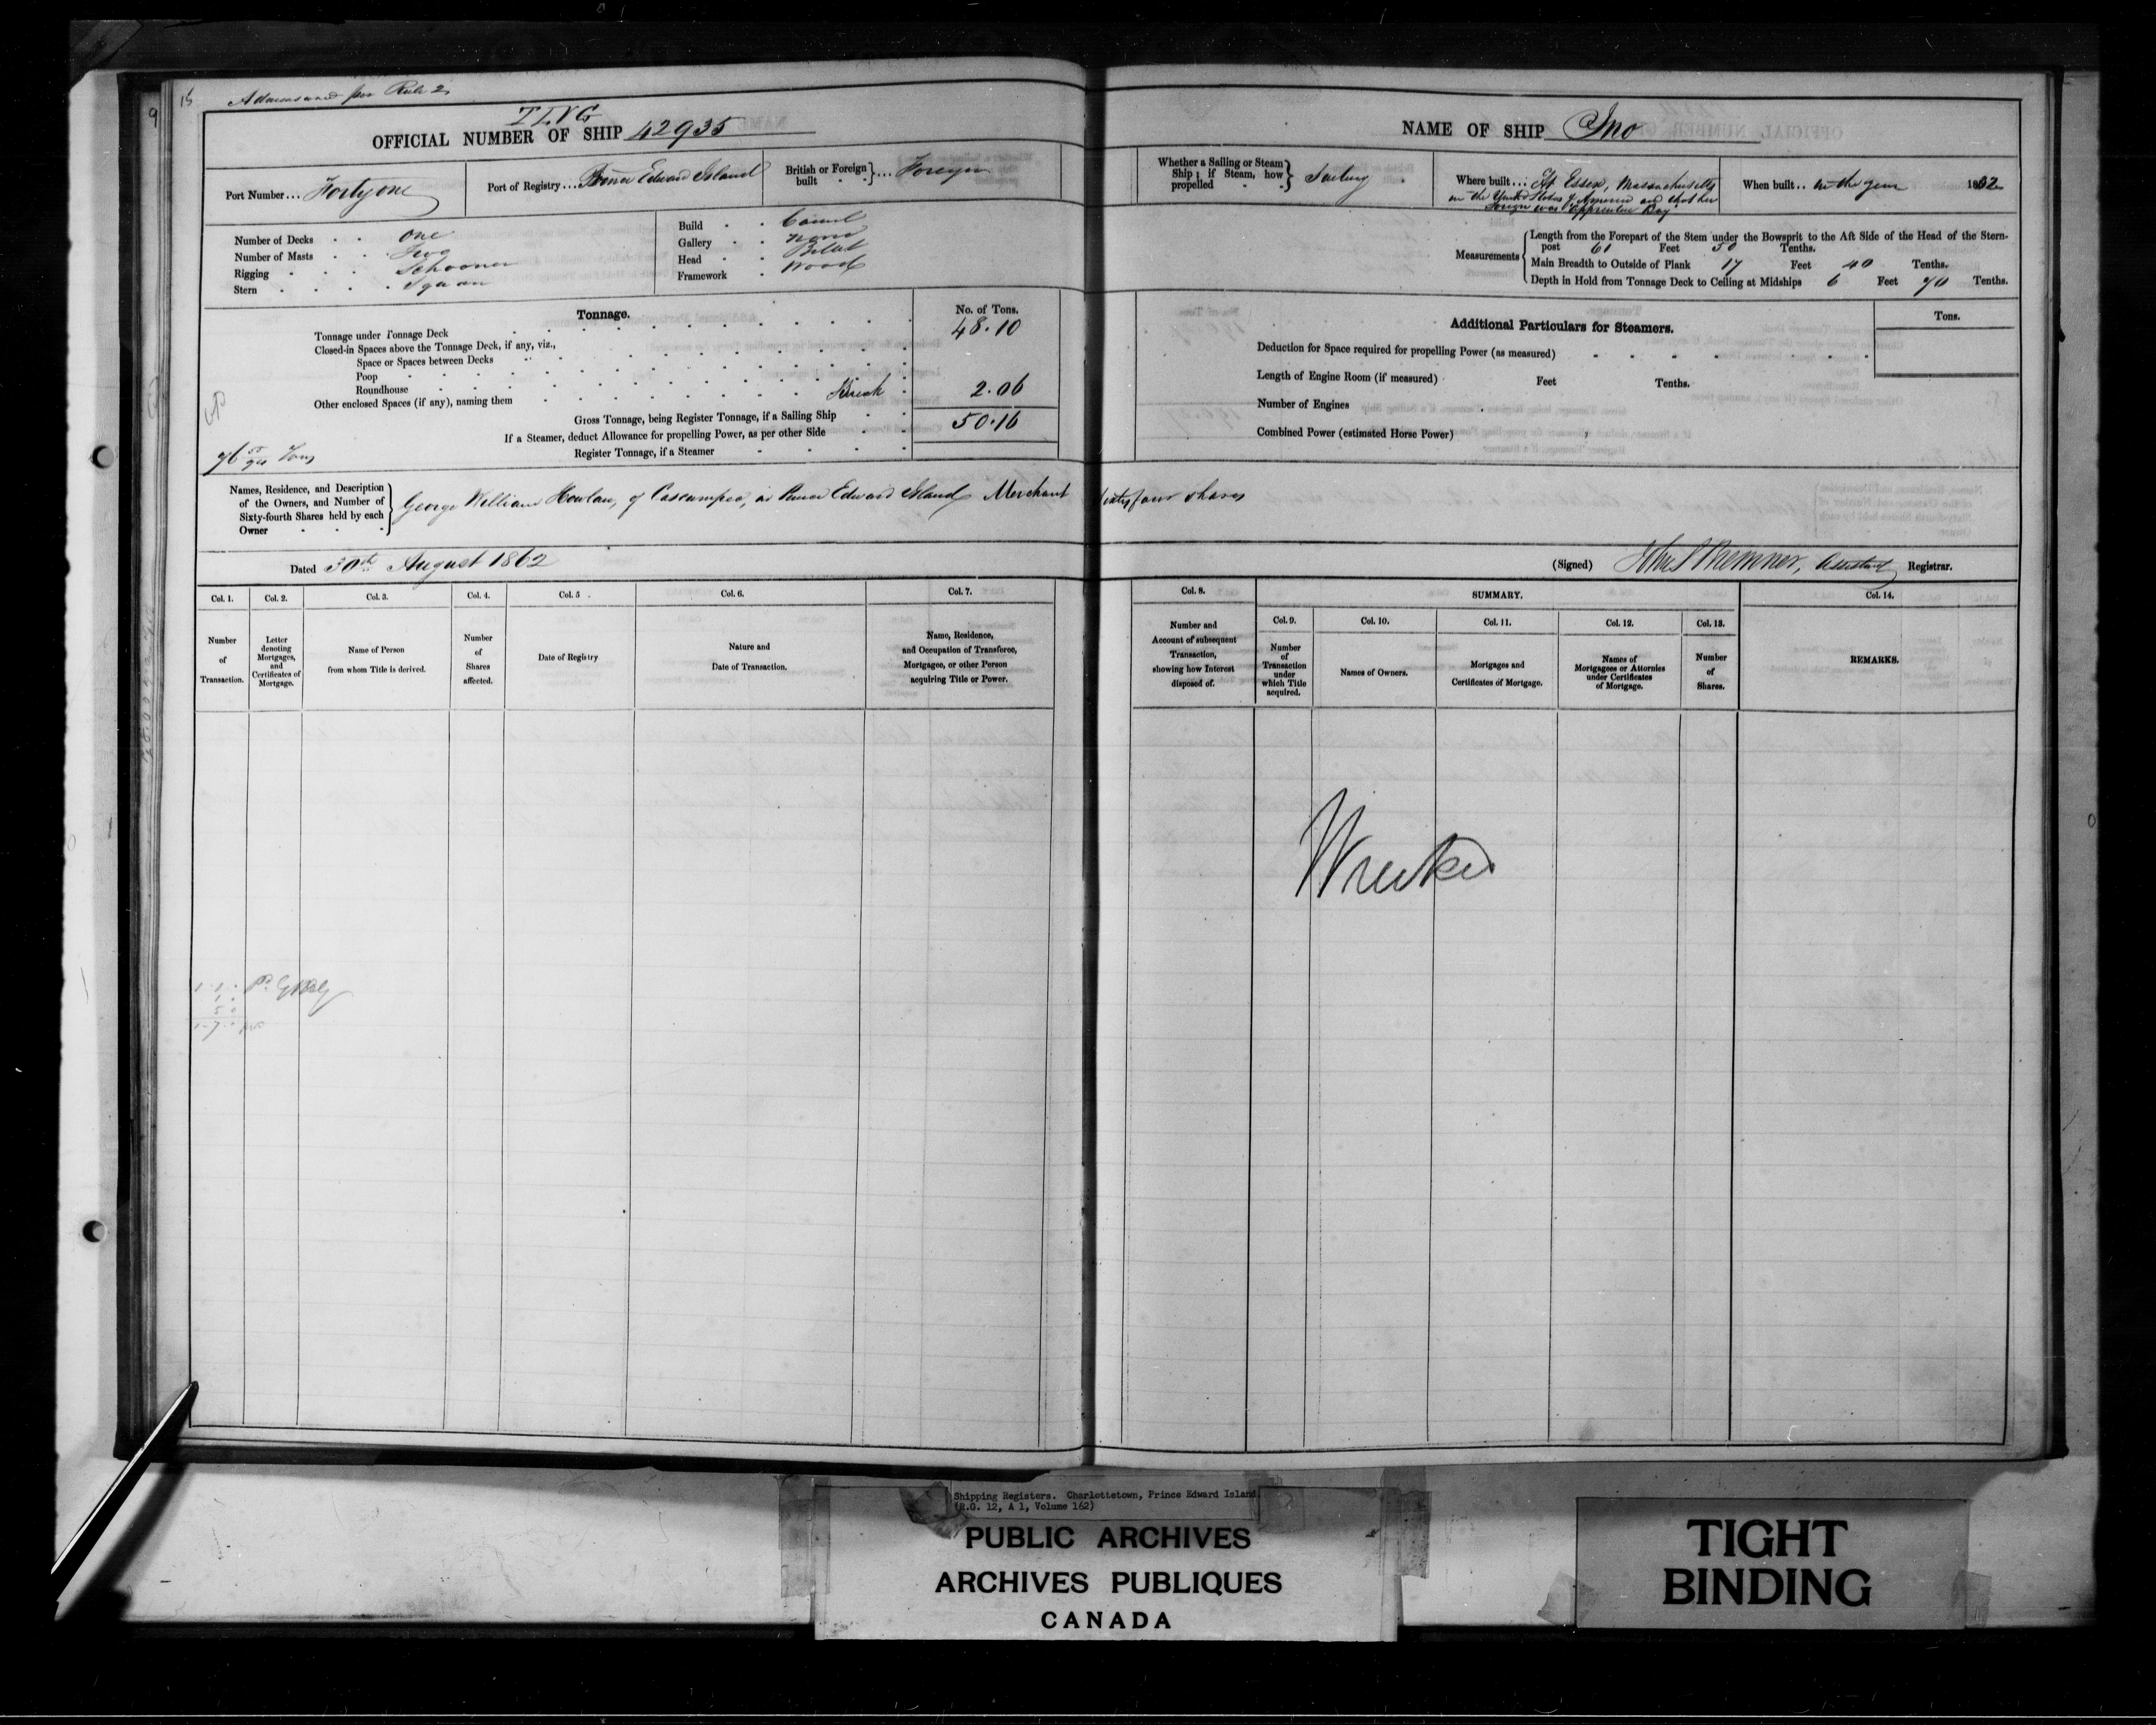 Admeasured per Rule 2
TLVG
OFFICIAL NUMBER OF SHIP 42935
Port Number ... Forty one
Port of Registry ... Prince Edward Island
British or Foreign built } ... Foreign
Number of Decks . . One
Number of Masts . . Two
Rigging . . . Schooner
Stern . . . . Square
Build . . Carvel
Gallery . . None
Head . . Billet
Framework . Wood
Tonnage.
No. of Tons.
Tonnage under Tonnage Deck 48.10
Closed-in Spaces above the Tonnage Deck, if any, viz.,
Space or Spaces between Decks
Poop
Roundhouse
Other enclosed Spaces (if any), naming them Break 2.06
Gross Tonnage, being Register Tonnage, if a Sailing Ship 50.16
If a Steamer, deduct Allowance for propelling Power, as per other Side
Register Tonnage, if a Steamer
Tons
Names, Residence, and Description of the Owners, and Number of Sixty-fourth Shares held by each Owner } George William Howlan, of Cascumpec, in Prince Edward Island Merchant Sixty four shares
Dated 30th August 1862
Col. 1.
Number of Transaction.
Col. 2.
Letter denoting Mortgages, and Certificates of Mortgage.
Col. 3.
Name of Person from whom Title is derived.
Col. 4.
Number of Shares affected.
Col. 5.
Date of Registry
Col. 6.
Nature and Date of Transaction.
Col. 7.
Name, Residence, and Occupation of Transferee, Mortgagee, or other Person acquiring Title or Power.
NAME OF SHIP Ino
Whether a Sailing or Steam Ship; if Steam, how propelled } Sailing
Where built ... At Essex, Massachusetts
in the United States of America and that her
foreign was Apprentice Boy
When built .. in the year 1832
Measurements
Length from the Forepart of the Stem under the Bowsprit to the Aft Side of the Head of the Stern-
post 61 Feet 50 Tenths.
Main Breadth to Outside of Plank 17 Feet 40 Tenths.
Depth in Hold from Tonnage Deck to Ceiling at Midships 6 Feet 70 Tenths.
Additional Particulars for Steamers.
Tons.
Deduction for Space required for propelling Power (as measured)
Length of Engine Room (if measured) Feet Tenths.
Number of Engines
Combined Power (estimated Horse Power)
(Signed) Assistant Registrar.
Col. 8.
Number and Account of subsequent Transaction, showing how Interest disposed of.
SUMMARY.
Col. 9.
Number of Transaction under which Title acquired.
Col. 10.
Names of Owners.
Col. 11.
Mortgages and Certificates of Mortgage.
Col. 12.
Names of Mortgagees or Attornies under Certificates of Mortgage.
Col. 13.
Number of Shares.
Col. 14.
REMARKS.
Wrecked
Shipping Registers. Charlottetown, Prince Edward Island
(R.G. 12, A 1, Volume 162)
PUBLIC ARCHIVES
ARCHIVES PUBLIQUES
CANADA
TIGHT
BINDING